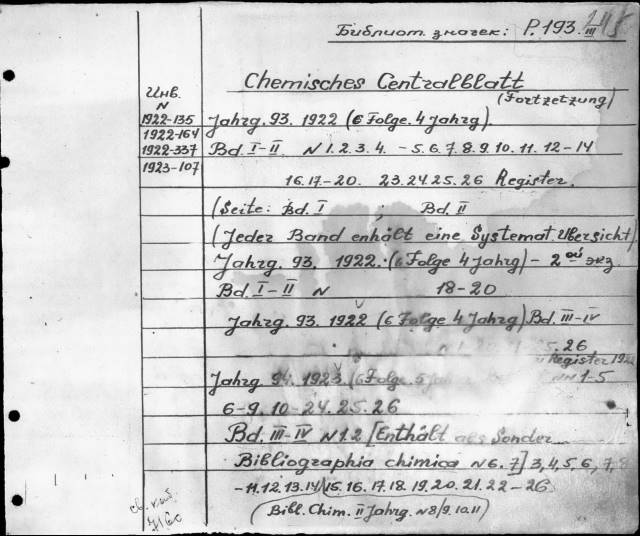 Библиот. значек: P. 193. III
Chemisches Centralblatt
(Fortzetzung)
Инв.
N
1922-135 Jahrg. 93. 1922 (6 Folge. 4 Jahrg).
1922-164
1922-337 Bd. I-II N 1. 2. 3. 4. - 5. 6. 7. 8. 9. 10. 11. 12-14
1923-107
16. 17-20. 23. 24. 25. 26 Register.
(Seite: Bd. I ; Bd. II
(Jeder Band enhält eine Systemat. Übersicht)
Jahrg. 93. 1922. (6 Folge 4 Jahrg) - 2ой экз.
Bd. I-II N 18-20
Jahrg. 93. 1922 (6 Folge 4 Jahrg) Bd. III-IV
26
Register
Jahrg. 94. 1923. (6 Folge. 5 NN 1-5
6-9. 10-24. 25. 26
Bd. III-IV N 1. 2 [Enthält als Sonder
Bibliographia chimica N 6. 7] 3, 4, 5, 6, 7, 8
-11. 12. 13. 14/15. 16. 17. 18. 19. 20. 21. 22-26
(Bibl. Chim. II Jahrg. N 8/9. 10. 11)